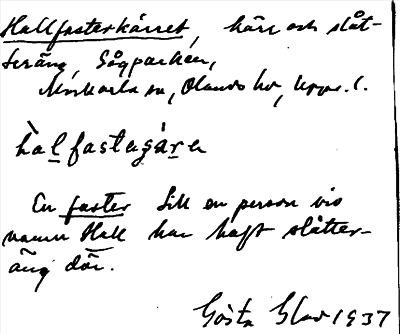 Hallfasterkärret, kärr och slåt-
teräng, Sågparken,
Morkarla sn, Olands hd, Upps. l.
En faster till en person vis
namn Hall har haft slåtter-
äng där.
Gösta Glad 1937